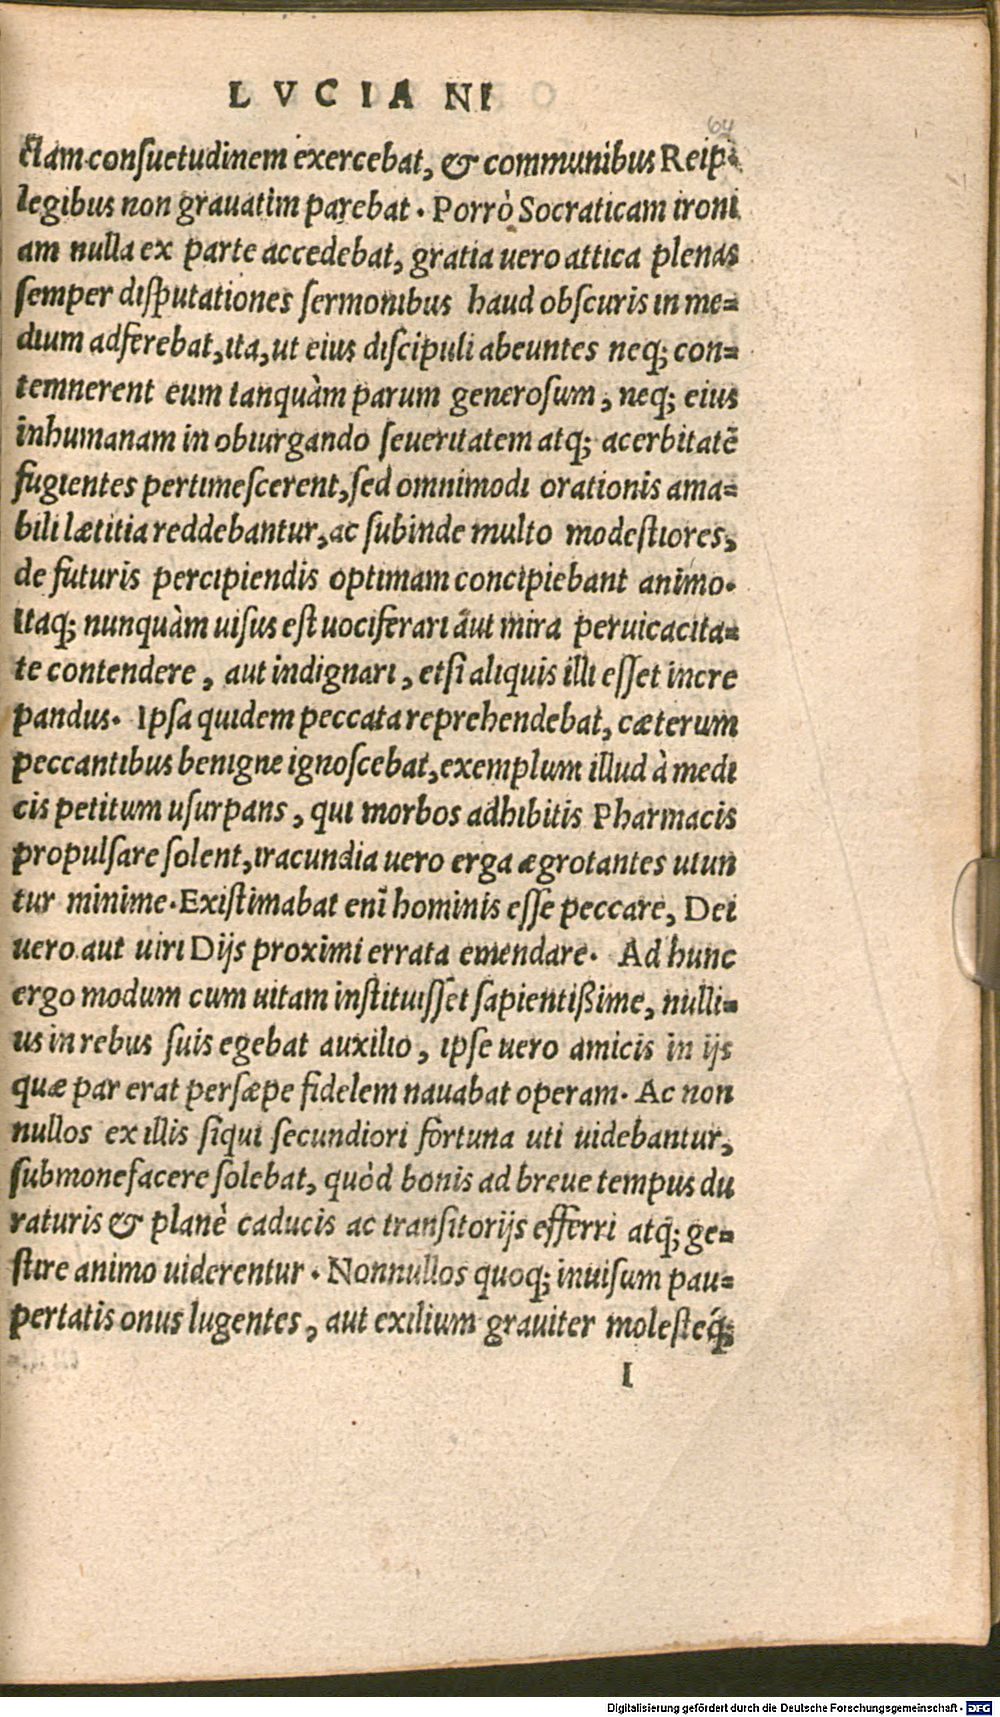 LVCIANI
64
ctam consuetudinem exercebat, & communibus Reip.
legibus non grauatim parebat. Porrò Socraticam ironi
am nulla ex parte accedebat, gratia uero attica plenas
semper disputationes sermonibus haud obscuris in me-
dium adferebat, ita, ut eius discipuli abeuntes neq; con-
temnerent eum tanquàm parum generosum, neq; eius
inhumanam in obiurgando seueritatem atq; acerbitatē
fugientes pertimescerent, sed omnimodi orationis ama-
bili lætitia reddebantur, ac subinde multo modestiores,
de futuris percipiendis optimam concipiebant animo.
Itaq; nunquàm uisus est uociferari aut mira peruicacita-
te contendere, aut indignari, etsi aliquis illi esset incre
pandus. Ipsa quidem peccata reprehendebat, cæterum
peccantibus benigne ignoscebat, exemplum illud à medi
cis petitum usurpans, qui morbos adhibitis Pharmacis
propulsare solent, iracundia uero erga ægrotantes utun
tur minime. Existimabat enī hominis esse peccare, Dei
uero aut uiri Dijs proximi errata emendare. Ad hunc
ergo modum cum uitam instituisset sapientißime, nulli-
us in rebus suis egebat auxilio, ipse uero amicis in ijs
quæ par erat persæpe fidelem nauabat operam. Ac non
nullos ex illis siqui secundiori fortuna uti uidebantur,
submonefacere solebat, quòd bonis ad breue tempus du
raturis & planè caducis ac transitorijs efferri atq; ge-
stire animo uiderentur. Nonnullos quoq; inuisum pau-
pertatis onus lugentes, aut exilium grauiter molesteq́;
I
Digitalisierung gefördert durch die Deutsche Forschungsgemeinschaft - DFG